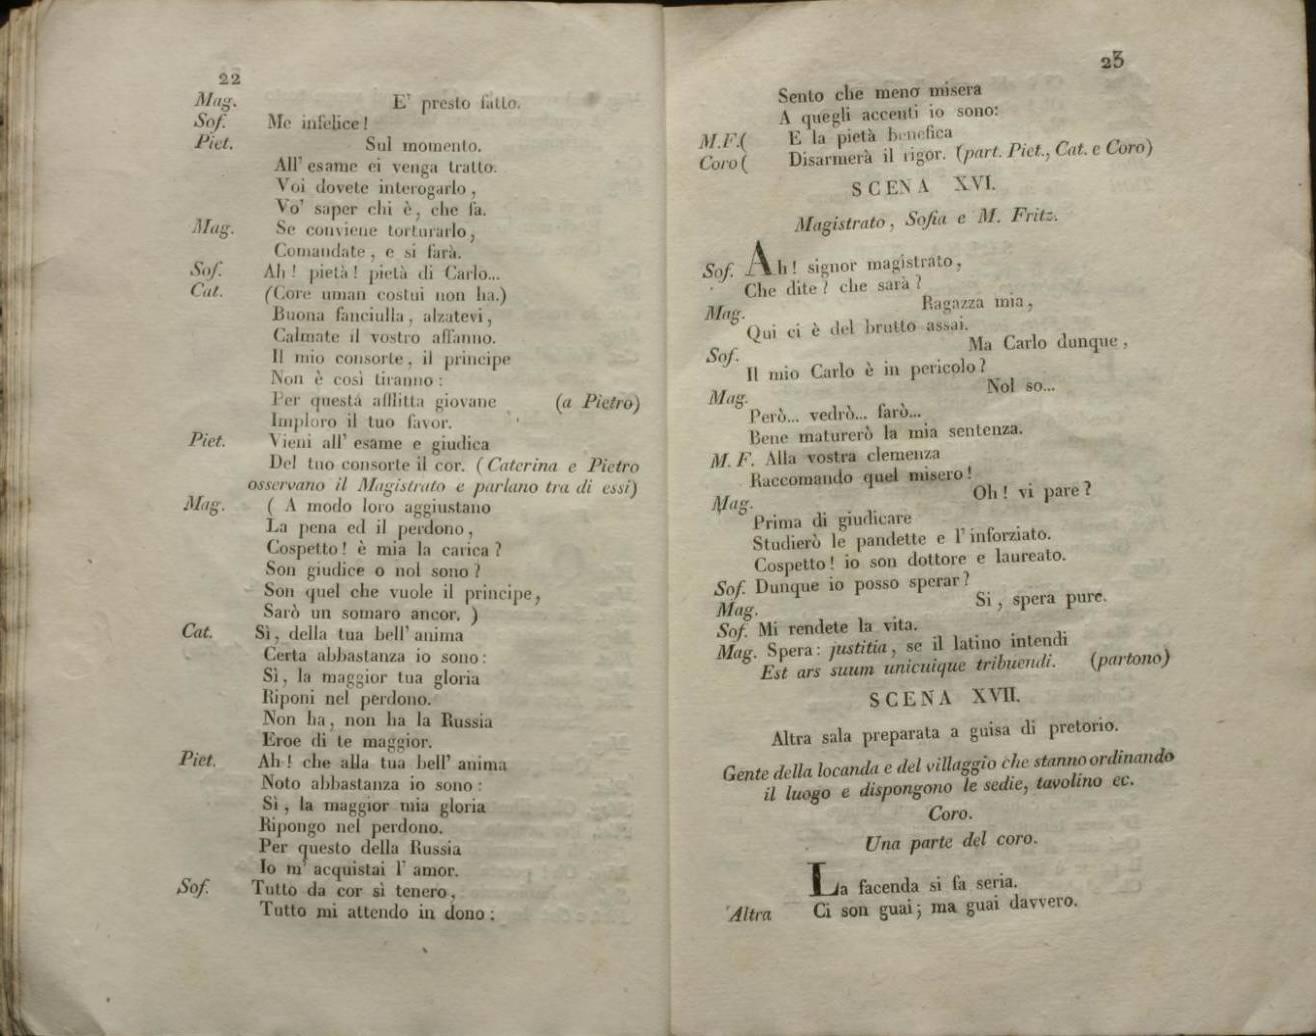 22
Mag. E' presto fatto.
Sof. Me infelice!
Piet. Sul momento.
All' esame ei venga tratto.
Voi dovete interogarlo,
Vo' saper chi è, che fa.
Mag. Se conviene torturarlo,
Comandate, e si farà.
Sof. Ah! pietà! pietà di Carlo...
Cat. (Core uman costui non ha.)
Buona fanciulla, alzatevi,
Calmate il vostro affanno.
Il mio consorte, il principe
Non è così tiranno:
Per questa afflitta giovane (a Pietro)
Imploro il tuo favor.
Piet. Vieni all' esame e giudica
Del tuo consorte il cor. (Caterina e Pietro
osservano il Magistrato e parlano tra di essi)
Mag. ( A modo loro aggiustano
La pena ed il perdono,
Cospetto! è mia la carica?
Son giudice o nol sono?
Son quel che vuole il principe,
Sarò un somaro ancor. )
Cat. Sì, della tua bell' anima
Certa abbastanza io sono:
Sì, la maggior tua gloria
Riponi nel perdono.
Non ha, non ha la Russia
Eroe di te maggior.
Piet. Ah! che alla tua bell' anima
Noto abbastanza io sono:
Sì, la maggior mia gloria
Ripongo nel perdono.
Per questo della Russia
Io m' acquistai l' amor.
Sof. Tutto da cor sì tenero,
Tutto mi attendo in dono:
23
Sento che meno misera
A quegli accenti io sono:
M.F.( E la pietà benefica
Coro ( Disarmerà il rigor. (part. Piet., Cat. e Coro)
SCENA XVI.
Magistrato, Sofia e M. Fritz.
Sof. Ah! signor magistrato,
Che dite? che sarà?
Mag. Ragazza mia,
Qui ci è del brutto assai.
Sof. Ma Carlo dunque,
Il mio Carlo è in pericolo?
Mag. Nol so...
Però... vedrò... farò...
Bene maturerò la mia sentenza.
M. F. Alla vostra clemenza
Raccomando quel misero!
Mag. Oh! vi pare?
Prima di giudicare
Studierò le pandette e l' inforziato.
Cospetto! io son dottore e laureato.
Sof. Dunque io posso sperar?
Mag. Si, spera pure.
Sof. Mi rendete la vita.
Mag. Spera: justitia, se il latino intendi
Est ars suum unicuique tribuendi. (partono)
SCENA XVII.
Altra sala preparata a guisa di pretorio.
Gente della locanda e del villaggio che stanno ordinando
il luogo e dispongono le sedie, tavolino ec.
Coro.
Una parte del coro.
La facenda si fa seria.
Altra Ci son guai; ma guai davvero.